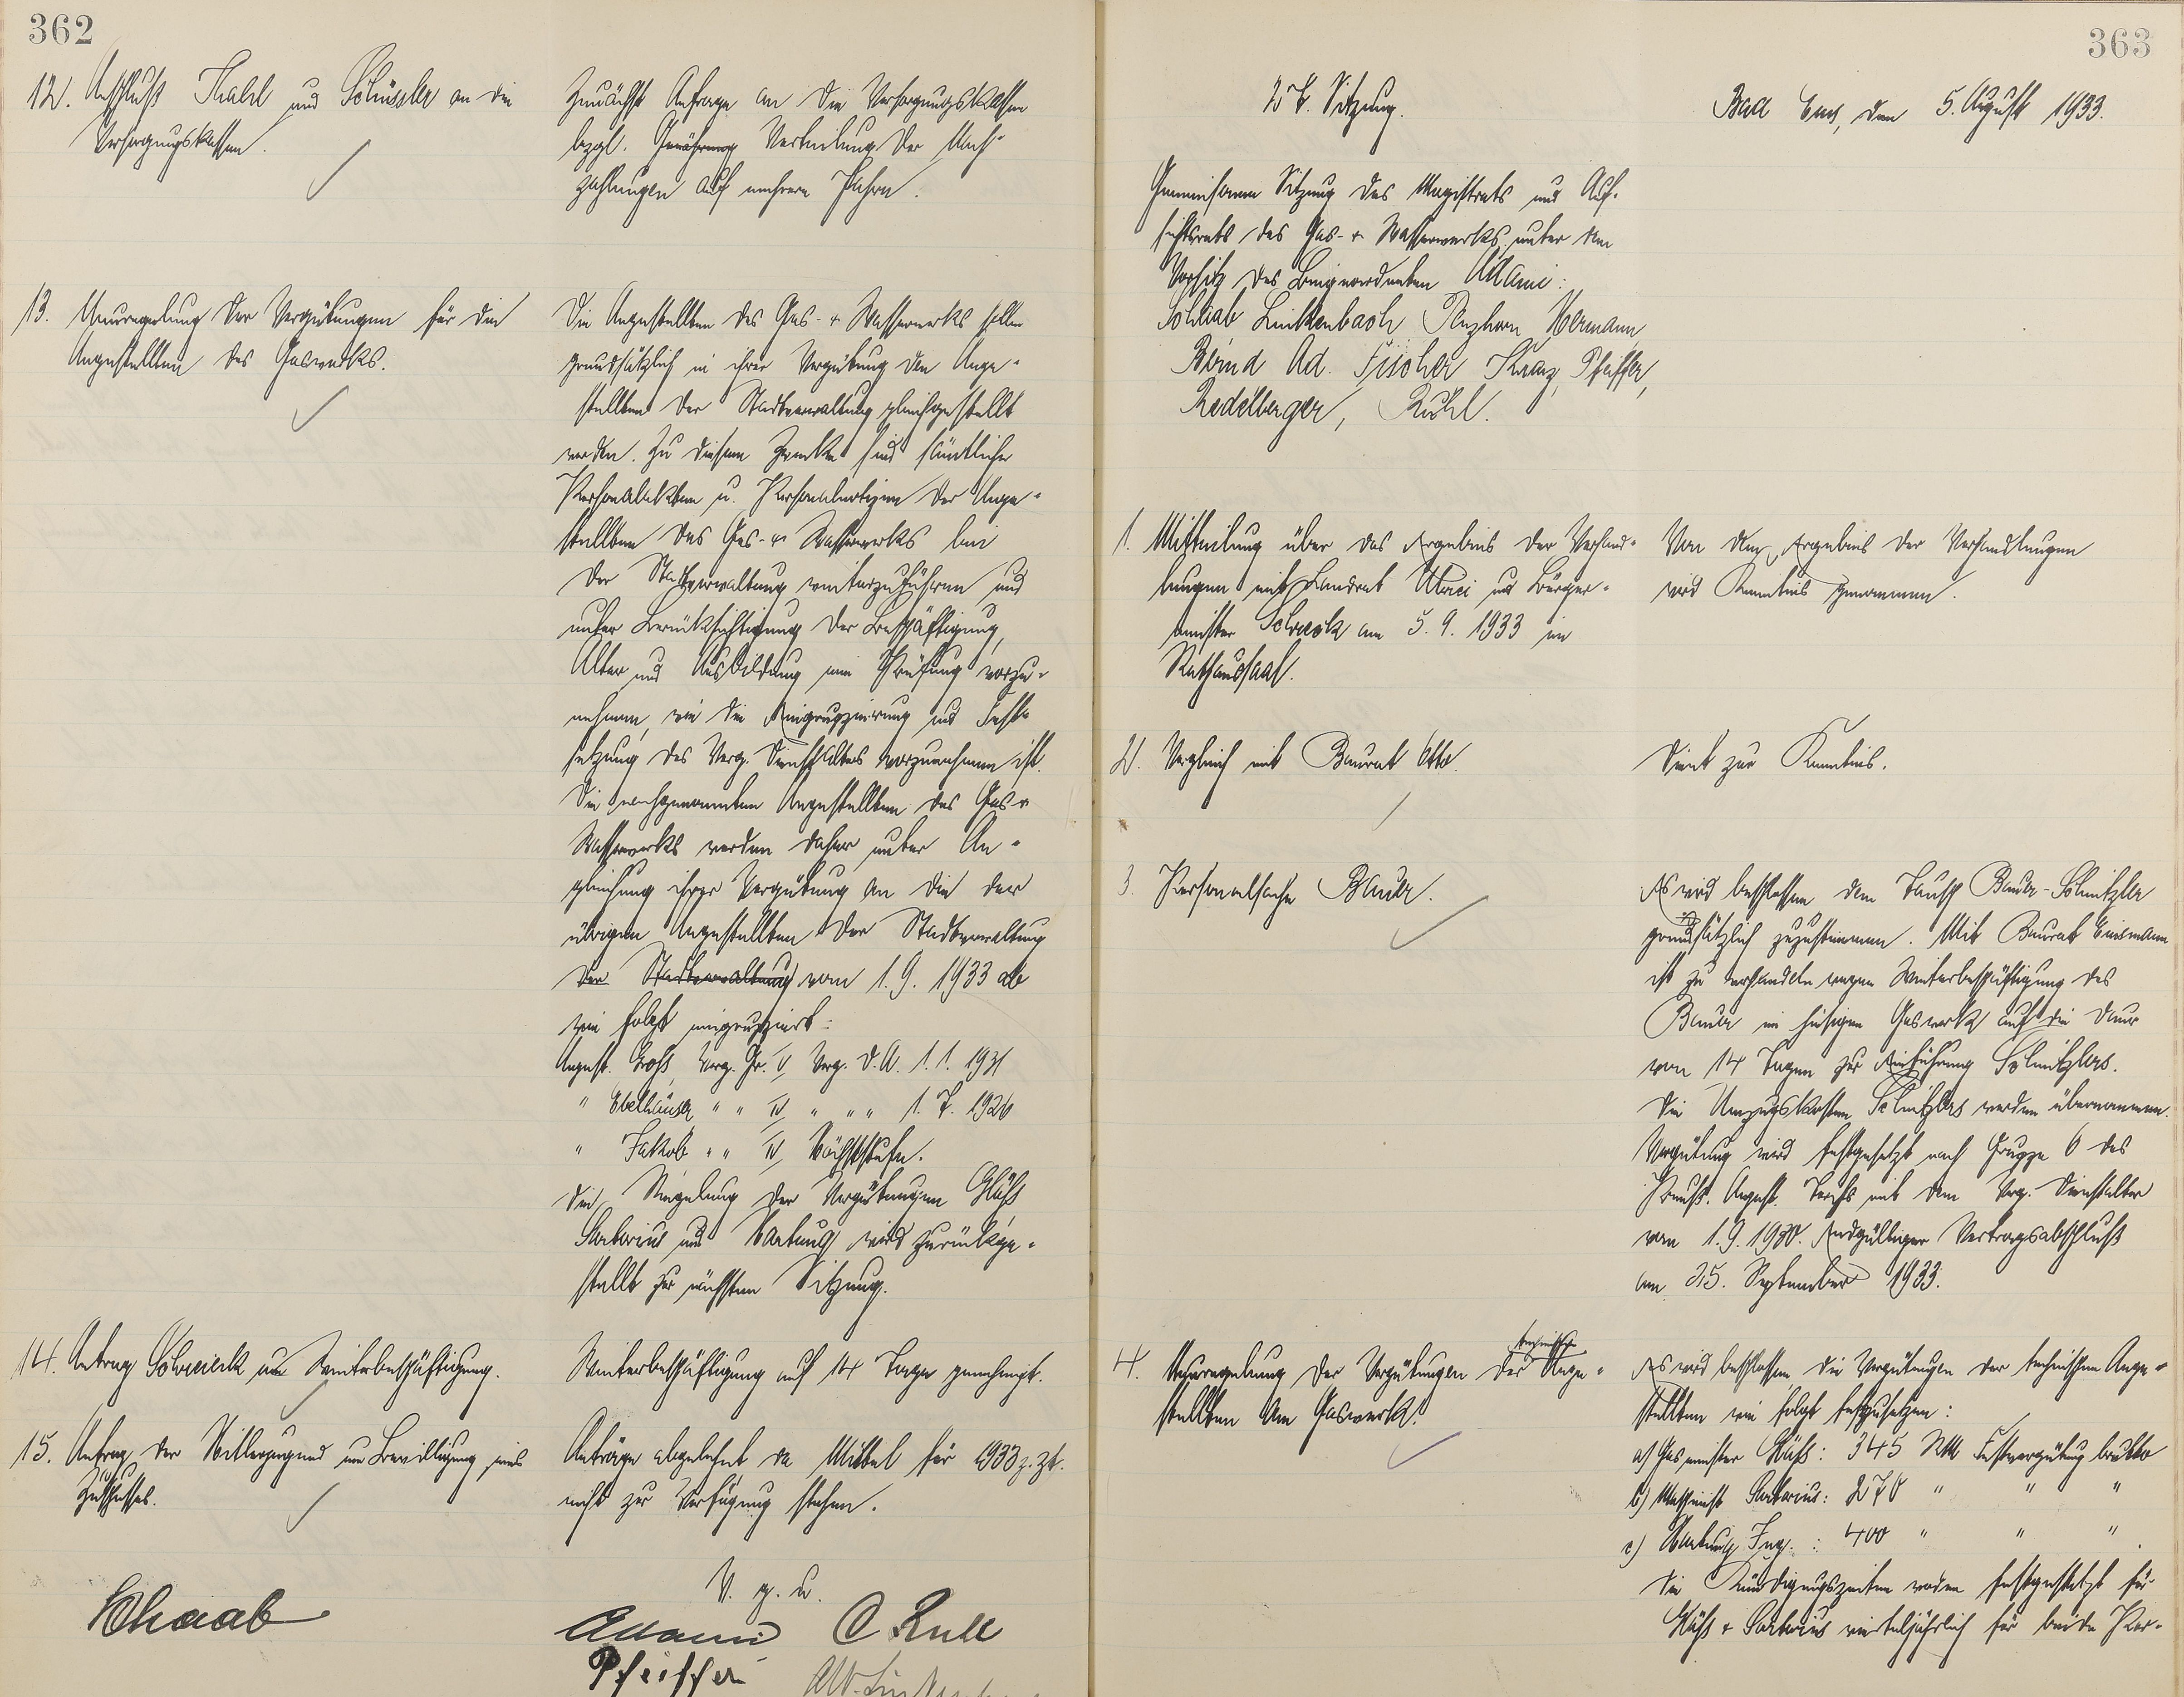 362
12. Anschluß Thahl und Schüssler an die
Versorgungskassen.
Zunächst Anfrage an die Versorgungskassen
bezgl. Gewährung Verteilung der Nach-
zahlungen auf mehrere Jahre.
13. Neuregelung der Vergütungen für die
Angestellten des Gaswerks.
Die Angestellten des Gas- & Wasserwerks sollen
grundsätzlich in ihrer Vergütung den Ange-
stellten der Stadtverwaltung gleichgestellt
werden. Zu diesem Zwecke sind sämtliche
Personalakten u. Personalnotizen der Ange-
stellten des Gas- & Wasserwerks bei
der Stadtverwaltung weiterzuführen und
unter Berücksichtigung der Beschäftigung,
Alter und Ausbildung eine Prüfung vorzu-
nehmen, wie die Eingruppierung und Fest-
setzung des Verg. Dienstalters vorzunehmen ist.
Die nachgenannten Angestellten des Gas &
Wasserwerks werden daher unter An-
gleichung ihrer Vergütung an die der
übrigen Angestellten der Stadtverwaltung
der Stadtverwaltung vom 1.9.1933 ab
wie folgt eingruppiert:
Angest. Groß, Verg. Gr. V, Verg. D.A. 1.1.1931
" Ebelhäuser " " IV, " " " 1.7.1926
" Jakob " " IV, Höchststufe.
Die Regelung der Vergütungen Gläß
Sartorius und Hartung wird zurückge-
stellt zur nächsten Sitzung.
14. Antrag Schreieck um Weiterbeschäftigung.
Weiterbeschäftigung auf 14 Tage genehmigt.
15. Antrag der Hitlerjugend um Bewilligung eines
Zuschusses.
Anträge abgelehnt da Mittel für 1933 z. Zt.
nicht zur Verfügung stehen.
V. g. u.
Schaab
Adami C Ruhl
Pfeiffer
363
27. Sitzung.
Bad Ems, den 5. August 1933.
Gemeinsame Sitzung des Magistrats und Auf-
sichtsrats des Gas- & Wasserwerks unter dem
Vorsitz des Beigeordneten Adami:
Schaab Linkenbach Hermann,
Bernd Ad. Fischer Kranz, Pfeiffer,
Redelberger, Ruhl.
1. Mitteilung über das Ergebnis der Verhand-
lungen mit Landrat Ulrici und Bürger-
meister Schreck am 5.9.1933 im
Rathaussaal.
Von dem Ergebnis der Verhandlungen
wird Kenntnis genommen.
2. Vergleich mit Baurat Otto.
Dient zur Kenntnis.
3. Personalsache Bauer.
Es wird beschlossen dem Tausch Bauer-Schnitzler
grundsätzlich zuzustimmen. Mit Baurat Eusmann
ist zu verhandeln wegen Weiterbeschäftigung des
Bauer im hiesigen Gaswerk auf die Dauer
von 14 Tagen zur Einführung Schnitzlers.
Die Umzugskosten Schnitzlers werden übernommen.
Vergütung wird festgesetzt nach Gruppe 6 des
Preuß. Angest. Tarifs mit dem Verg. Dienstalter
vom 1.9.1930. Endgültiger Vertragsabschluß
am 25. September 1933.
4. Neuregelung der Vergütungen der technischen Ange-
stellten am Gaswerk.
Es wird beschlossen die Vergütungen der technischen Ange-
stellten wie folgt festzusetzen:
a) Gasmeister Gläß: 345 RM Festvergütung brutto
b) Maschinist Sartorius: 270 " " "
c) Hartung Ing.: 400 " " "
Die Kündigungszeiten werden festgesetzt für
Gläß & Sartorius vierteljährlich für beide Par-